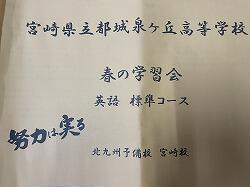 宮崎県立都城泉ヶ丘高等学校
春の学習会
英語 標準コース
努力は実る
北九州予備校 宮崎校